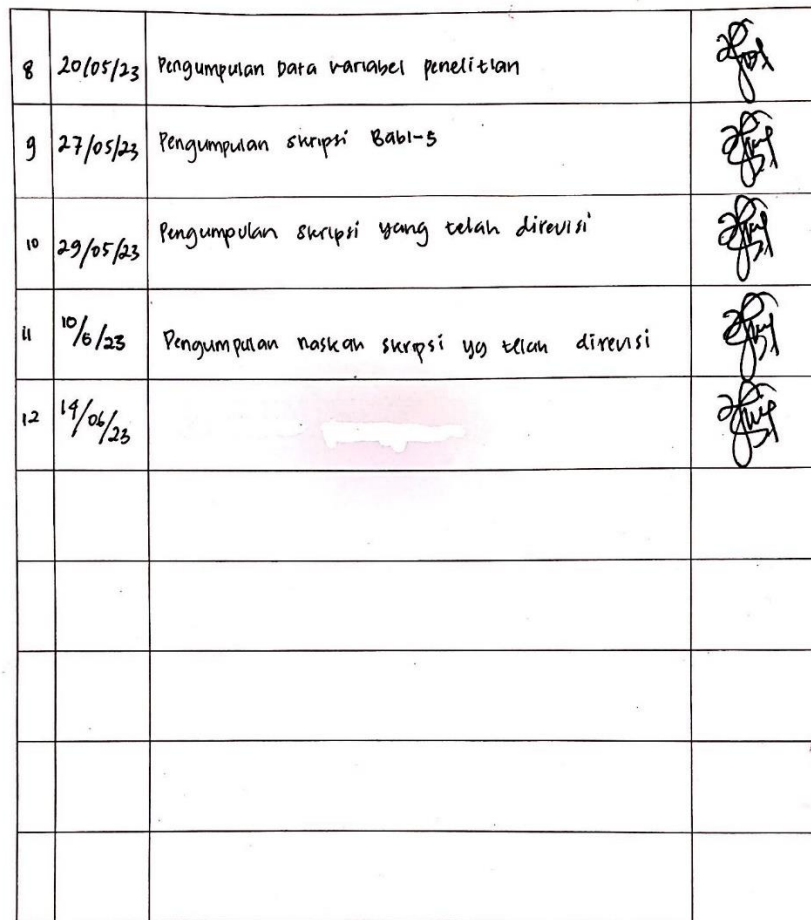 8 20/05/23 Pengumpulan Data variabel penelitian
9 27/05/23 Pengumpulan skripsi Bab1-5
10 29/05/23 Pengumpulan skripsi yang telah direvisi
11 10/6/23 Pengumpulan naskah skripsi yg telah direvisi
12 14/06/23